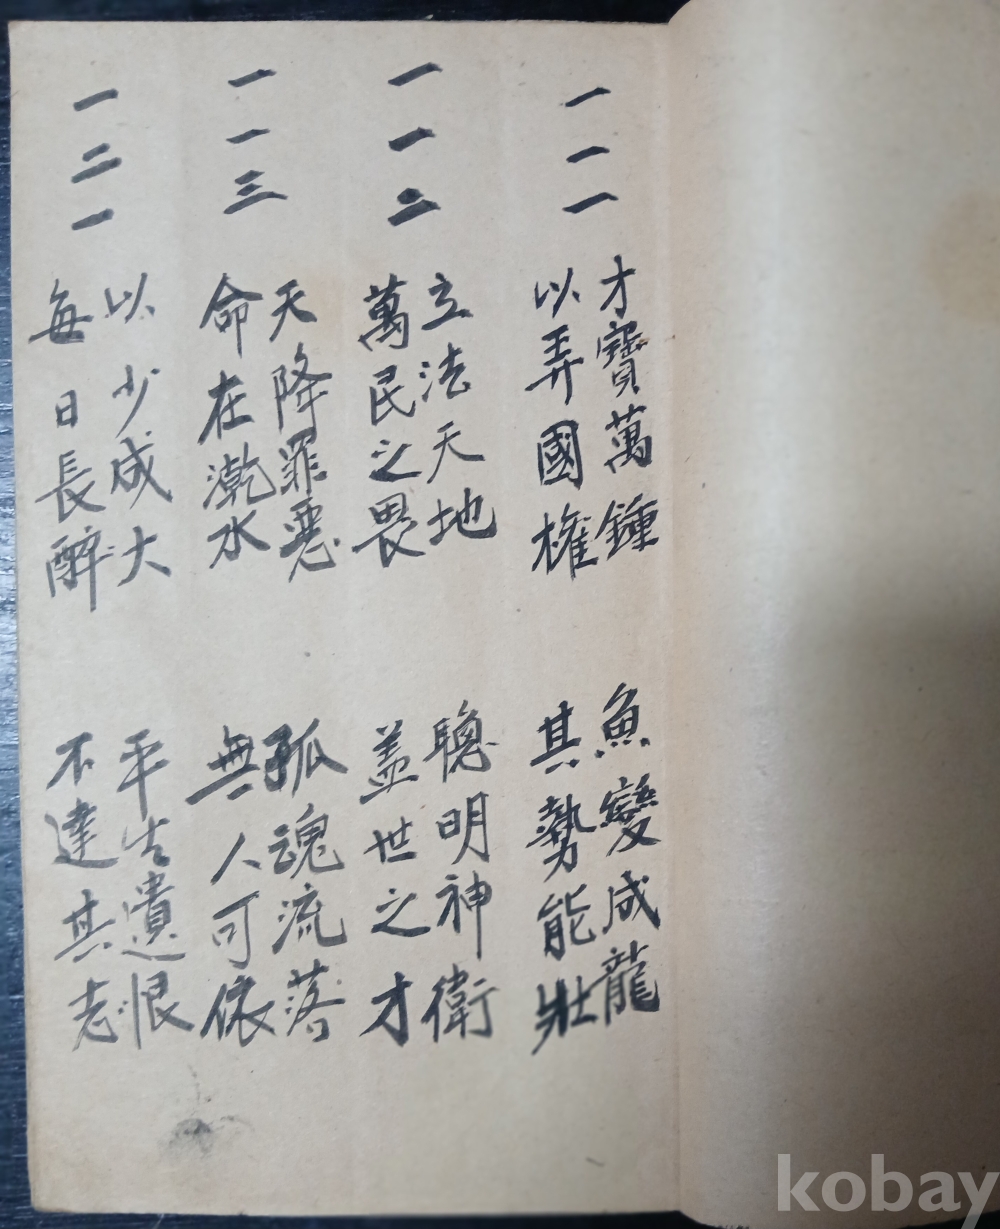 一一一
才寶萬鍾
以弄國權
魚變成龍
其勢能壯
一一二
立法天地
萬民之畏
聰明神衛
盖世之才
一一三
天降罪惡
命在乾水
孤魂流落
無人可依
一二一
以少成大
每日長醉
平生遺恨
不達其志
kobay